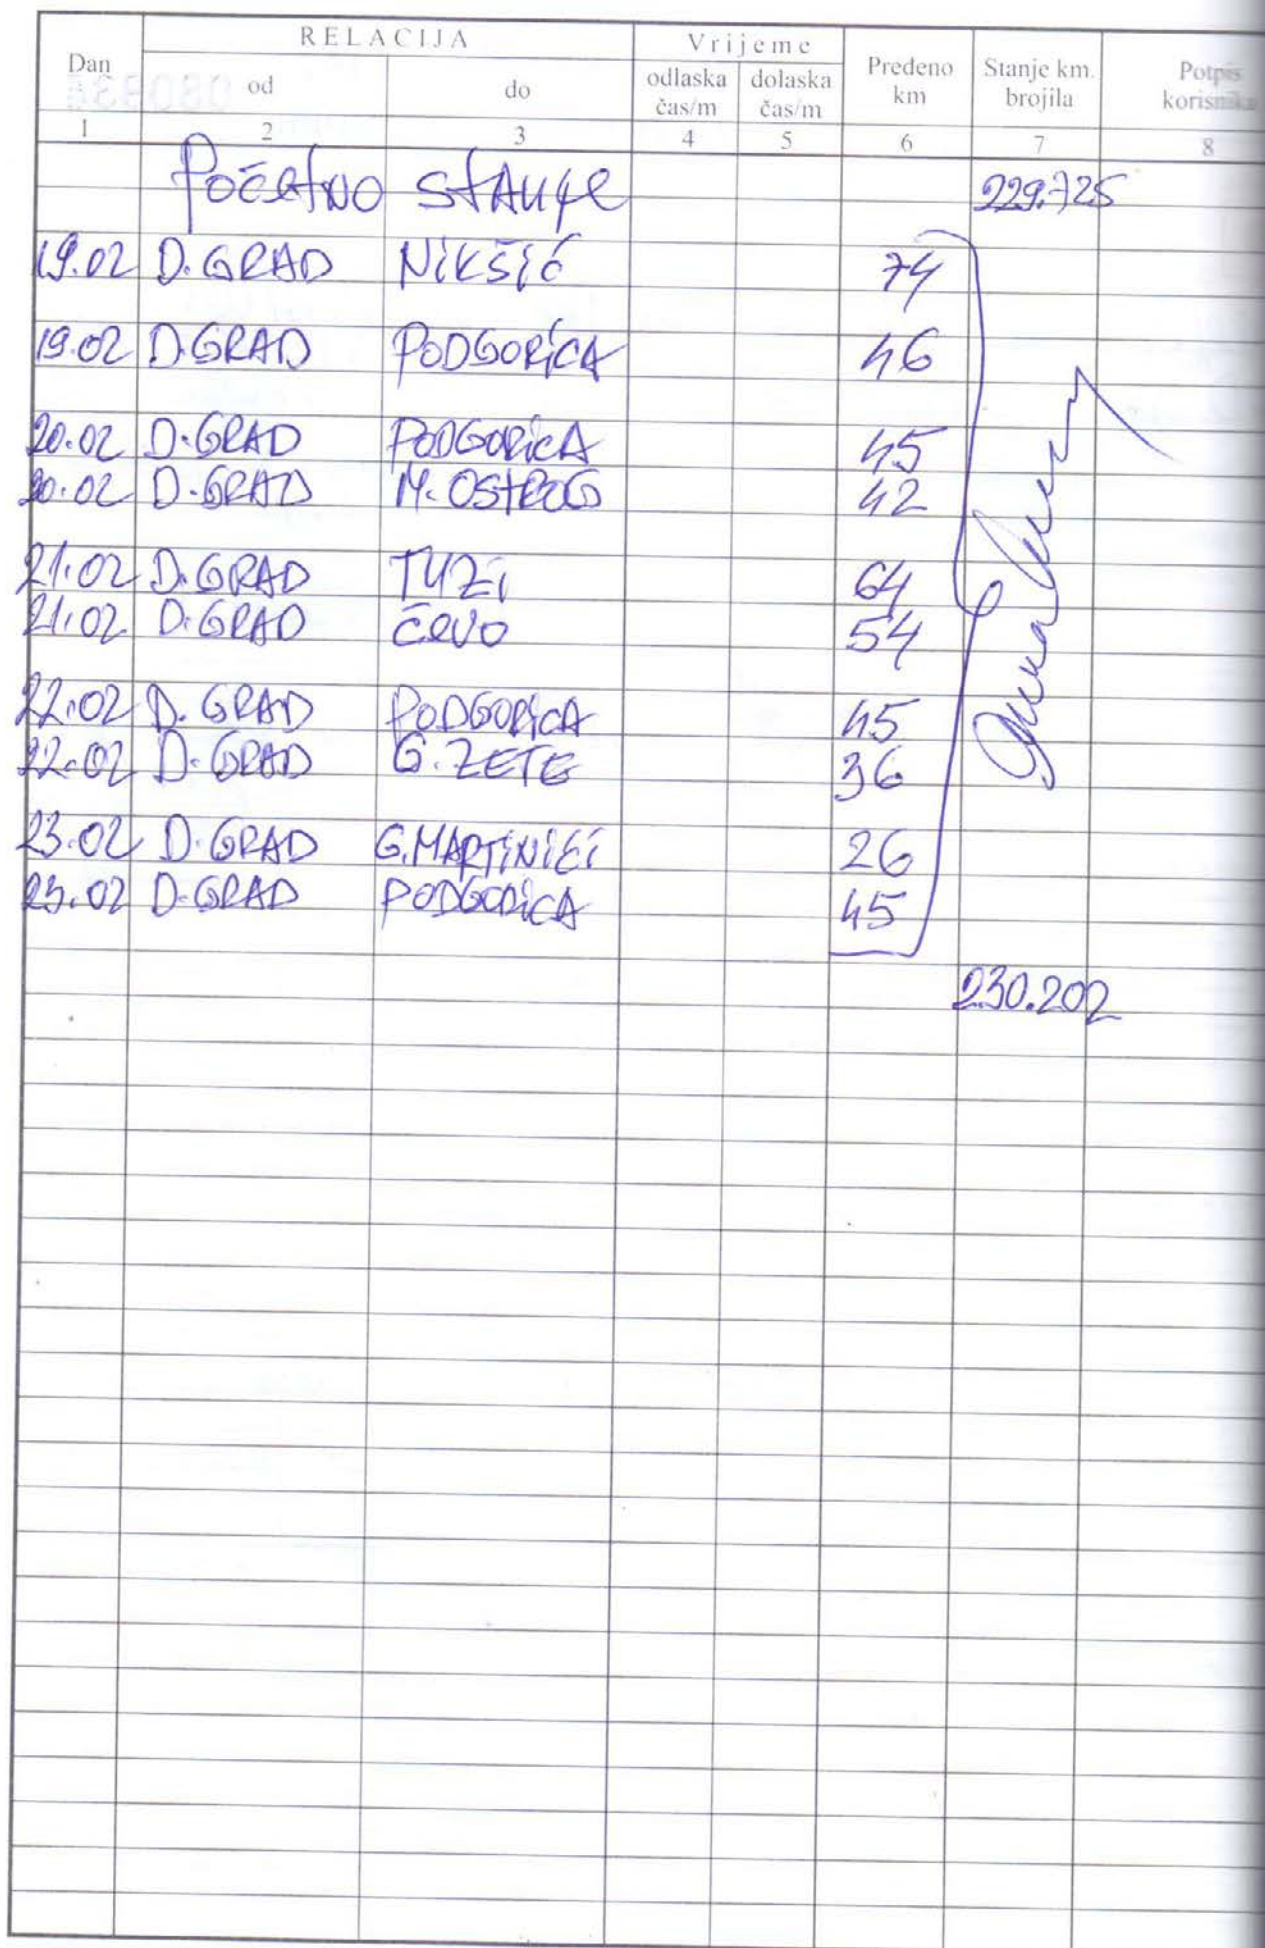 RELACIJA Vrijeme
Dan od do odlaska čas/m dolaska čas/m Pređeno km Stanje km. brojila Potpis korisnika
1 2 3 4 5 6 7 8
Početno stanje 229.725
19.02 D. GRAD NIKŠIĆ 74
19.02 D.GRAD PODGORICA 46
20.02 D.GRAD PODGORICA 45
20.02 D.GRAD M. OSTROG 42
21.02 D.GRAD TUZI 64
21.02. D.GRAD ČEVO 54
22.02 D. GRAD PODGORICA 45
22.02 D. GRAD G. ZETE 36
23.02 D.GRAD G.MARTINIĆI 26
23.02 D.GRAD PODGORICA 45
230.202